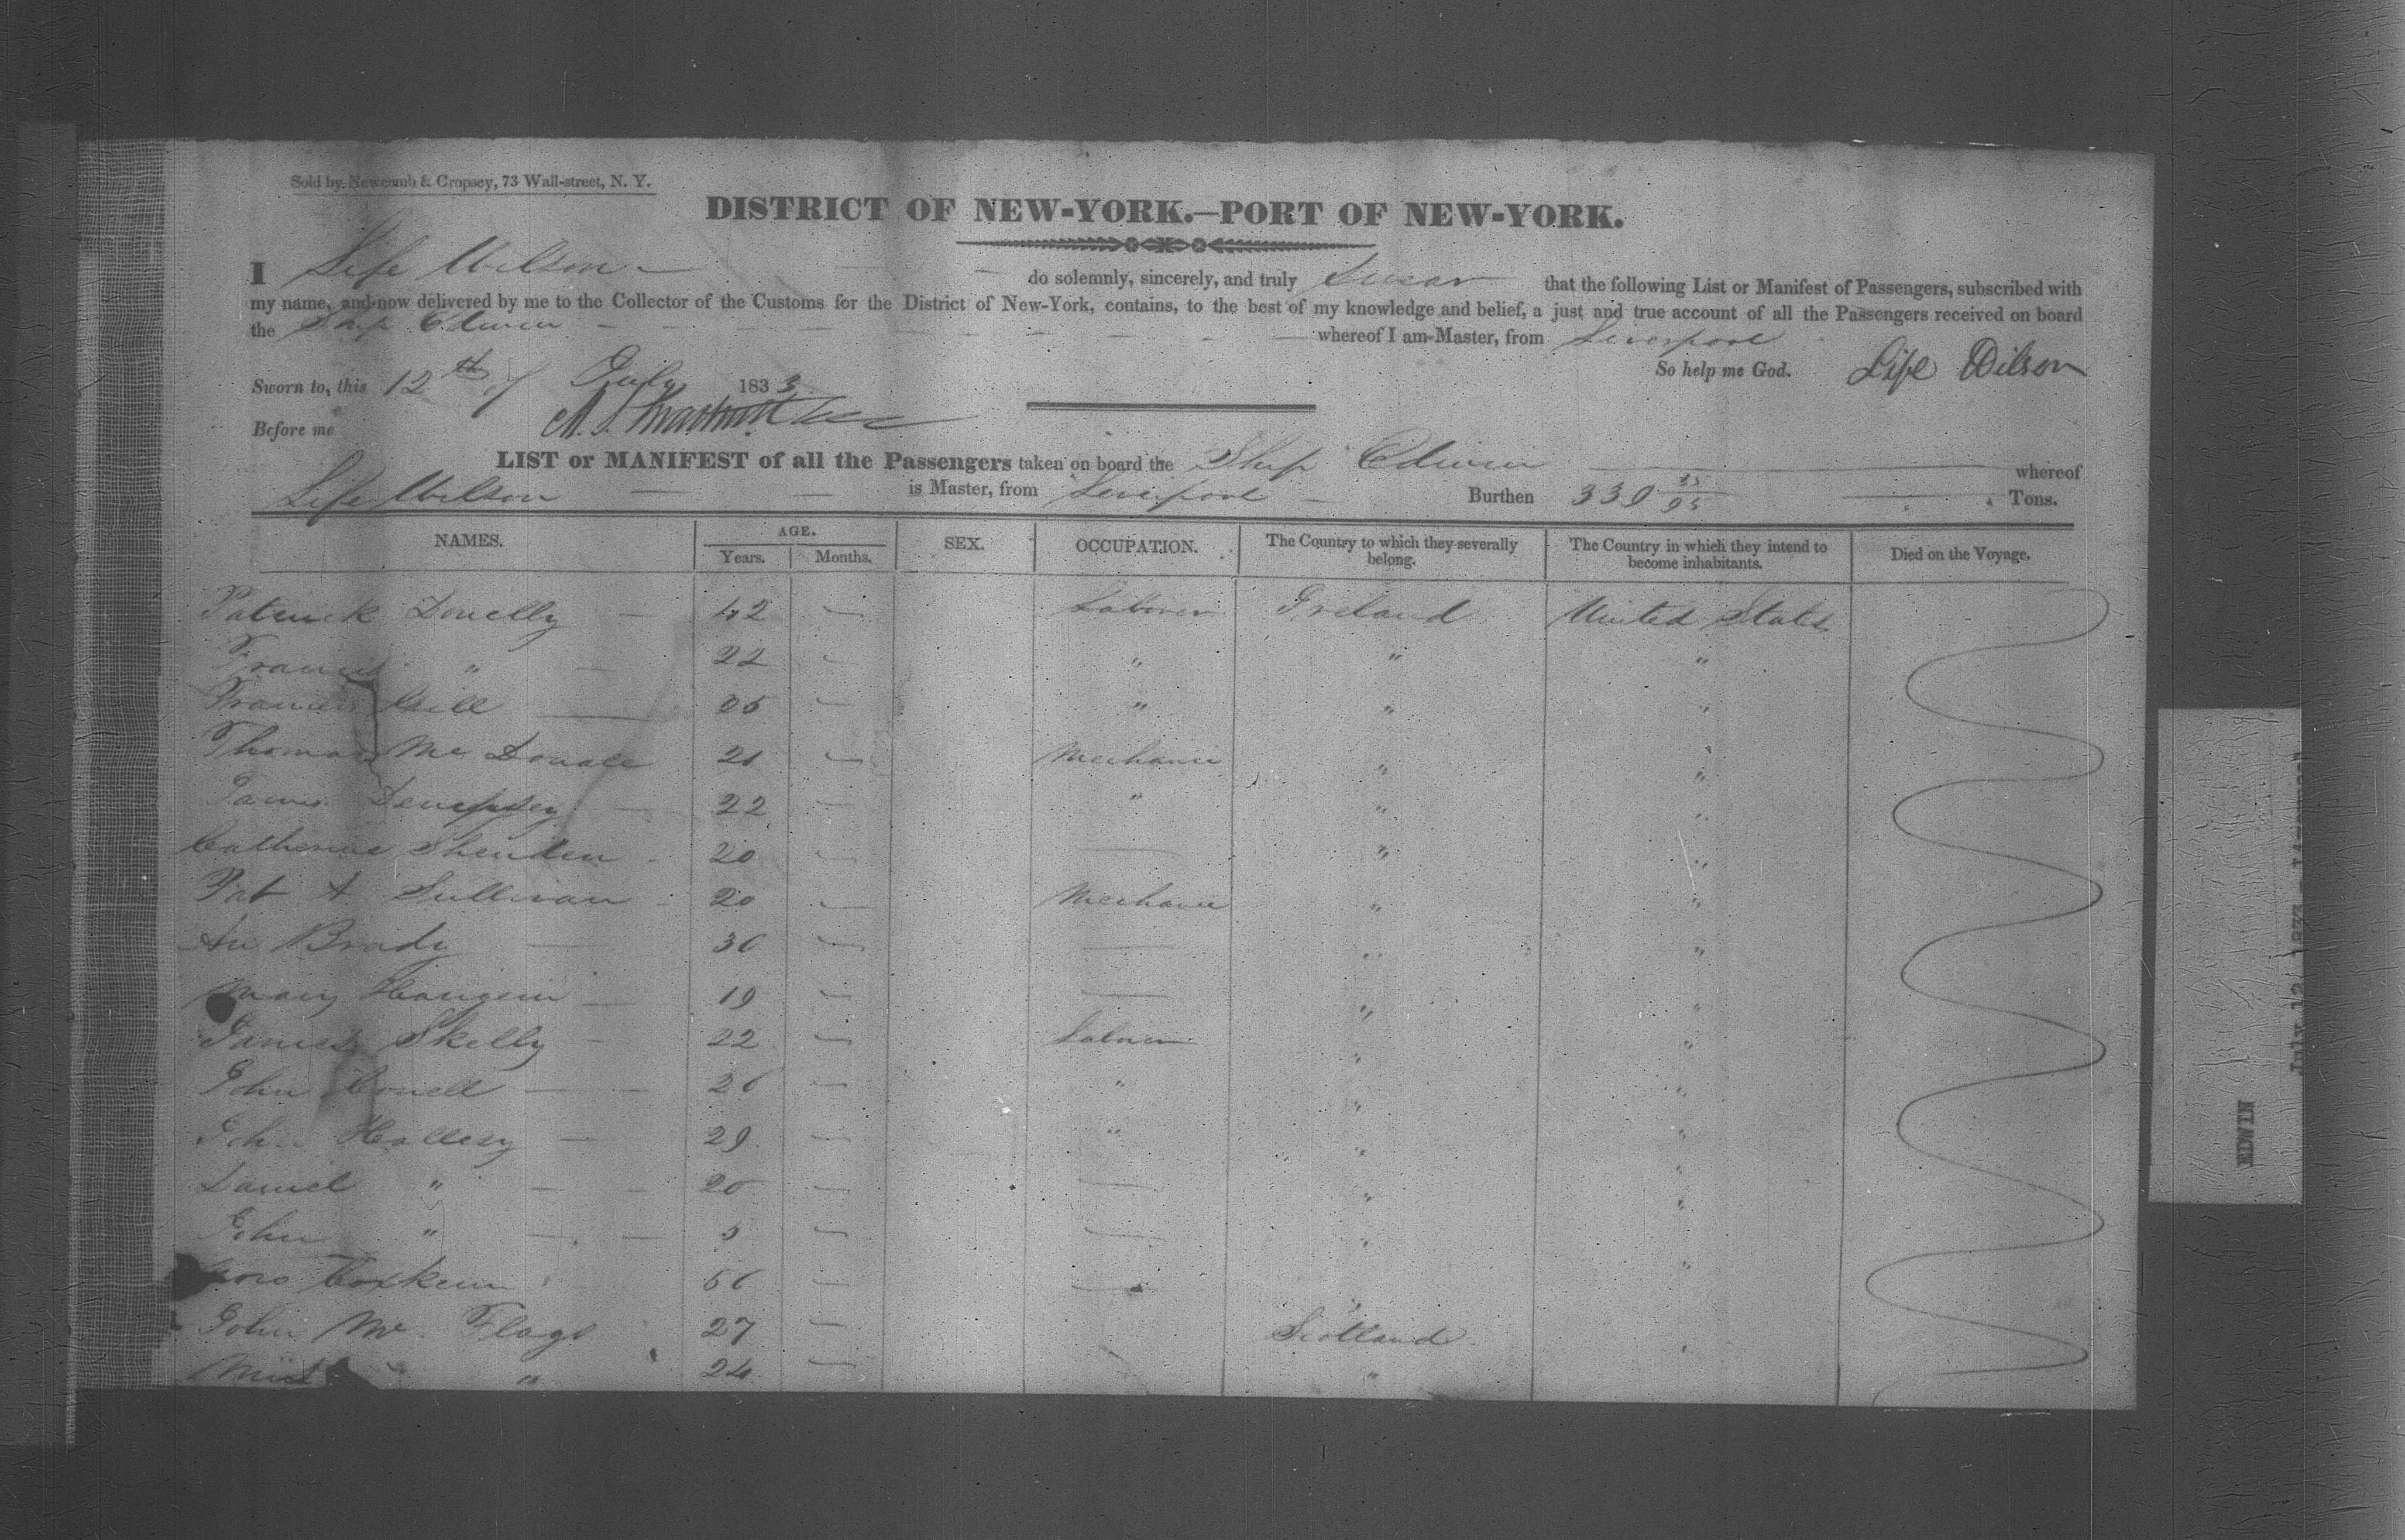 Sold by Newcomb & Cropsey, 73 Wall-street, N. Y.
DISTRICT OF NEW-YORK.—PORT OF NEW-YORK.
I Life Wilson do solemnly, sincerely, and truly Swear that the following List or Manifest of Passengers, subscribed with
my name, and now delivered by me to the Collector of the Customs for the District of New-York, contains, to the best of my knowledge and belief, a just and true account of all the Passengers received on board
the Ship Edwin whereof I am Master, from Liverpool
So help me God. Life Wilson
Sworn to, this 12th of July 1833
Before me
LIST or MANIFEST of all the Passengers taken on board the Ship Edwin whereof
Life Wilson is Master, from Liverpool Burthen 339 33/95 Tons.
NAMES. AGE. SEX. OCCUPATION. The Country to which they severally belong. The Country in which they intend to become inhabitants. Died on the Voyage.
Years. Months.
Patrick Donelly 42 — Laborer Ireland United States
Francis " 22 — " " "
Francis 25 — " " "
Thomas Mc Donale 21 — Mechanic " "
James Dempsey 22 — " " "
Catherine 20 — — " "
Pat A Sullivan 20 — Mechanic " "
An Brady 36 — — " "
Mary 19 — — " "
James Skelly 22 — Laborer " "
John 26 — " " "
John Hallery 29 — " " "
Daniel " 20 — — " "
John " — — " "
56 — — " "
John Mc 27 — Scotland "
" 24 "
July 12, 1833
EDWIN